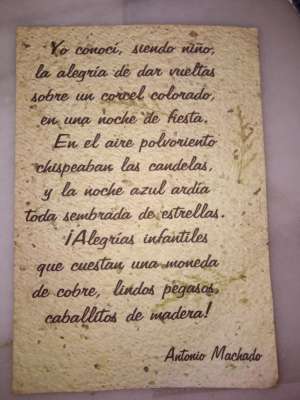 Yo conocí, siendo niño,
la alegría de dar vueltas
sobre un corcel colorado,
en una noche de fiesta.
En el aire polvoriento
chispeaban las candelas,
y la noche azul ardía
toda sembrada de estrellas.
¡Alegrías infantiles
que cuestan una moneda
de cobre, lindos pegasos,
caballitos de madera!
Antonio Machado